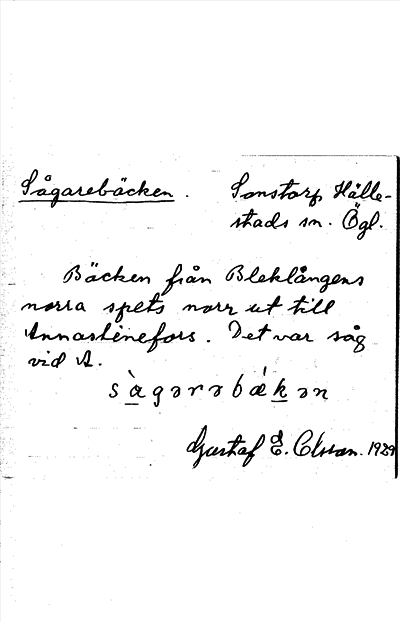 Sågarebäcken. Sonstorp Hälle-
stads sn. Ögl.
Bäcken från Bleklångens
norra spets norr ut till
Annastinefors. Det var såg
vid A.
sàgərəbákən
Gustaf E. Olsson. 1929